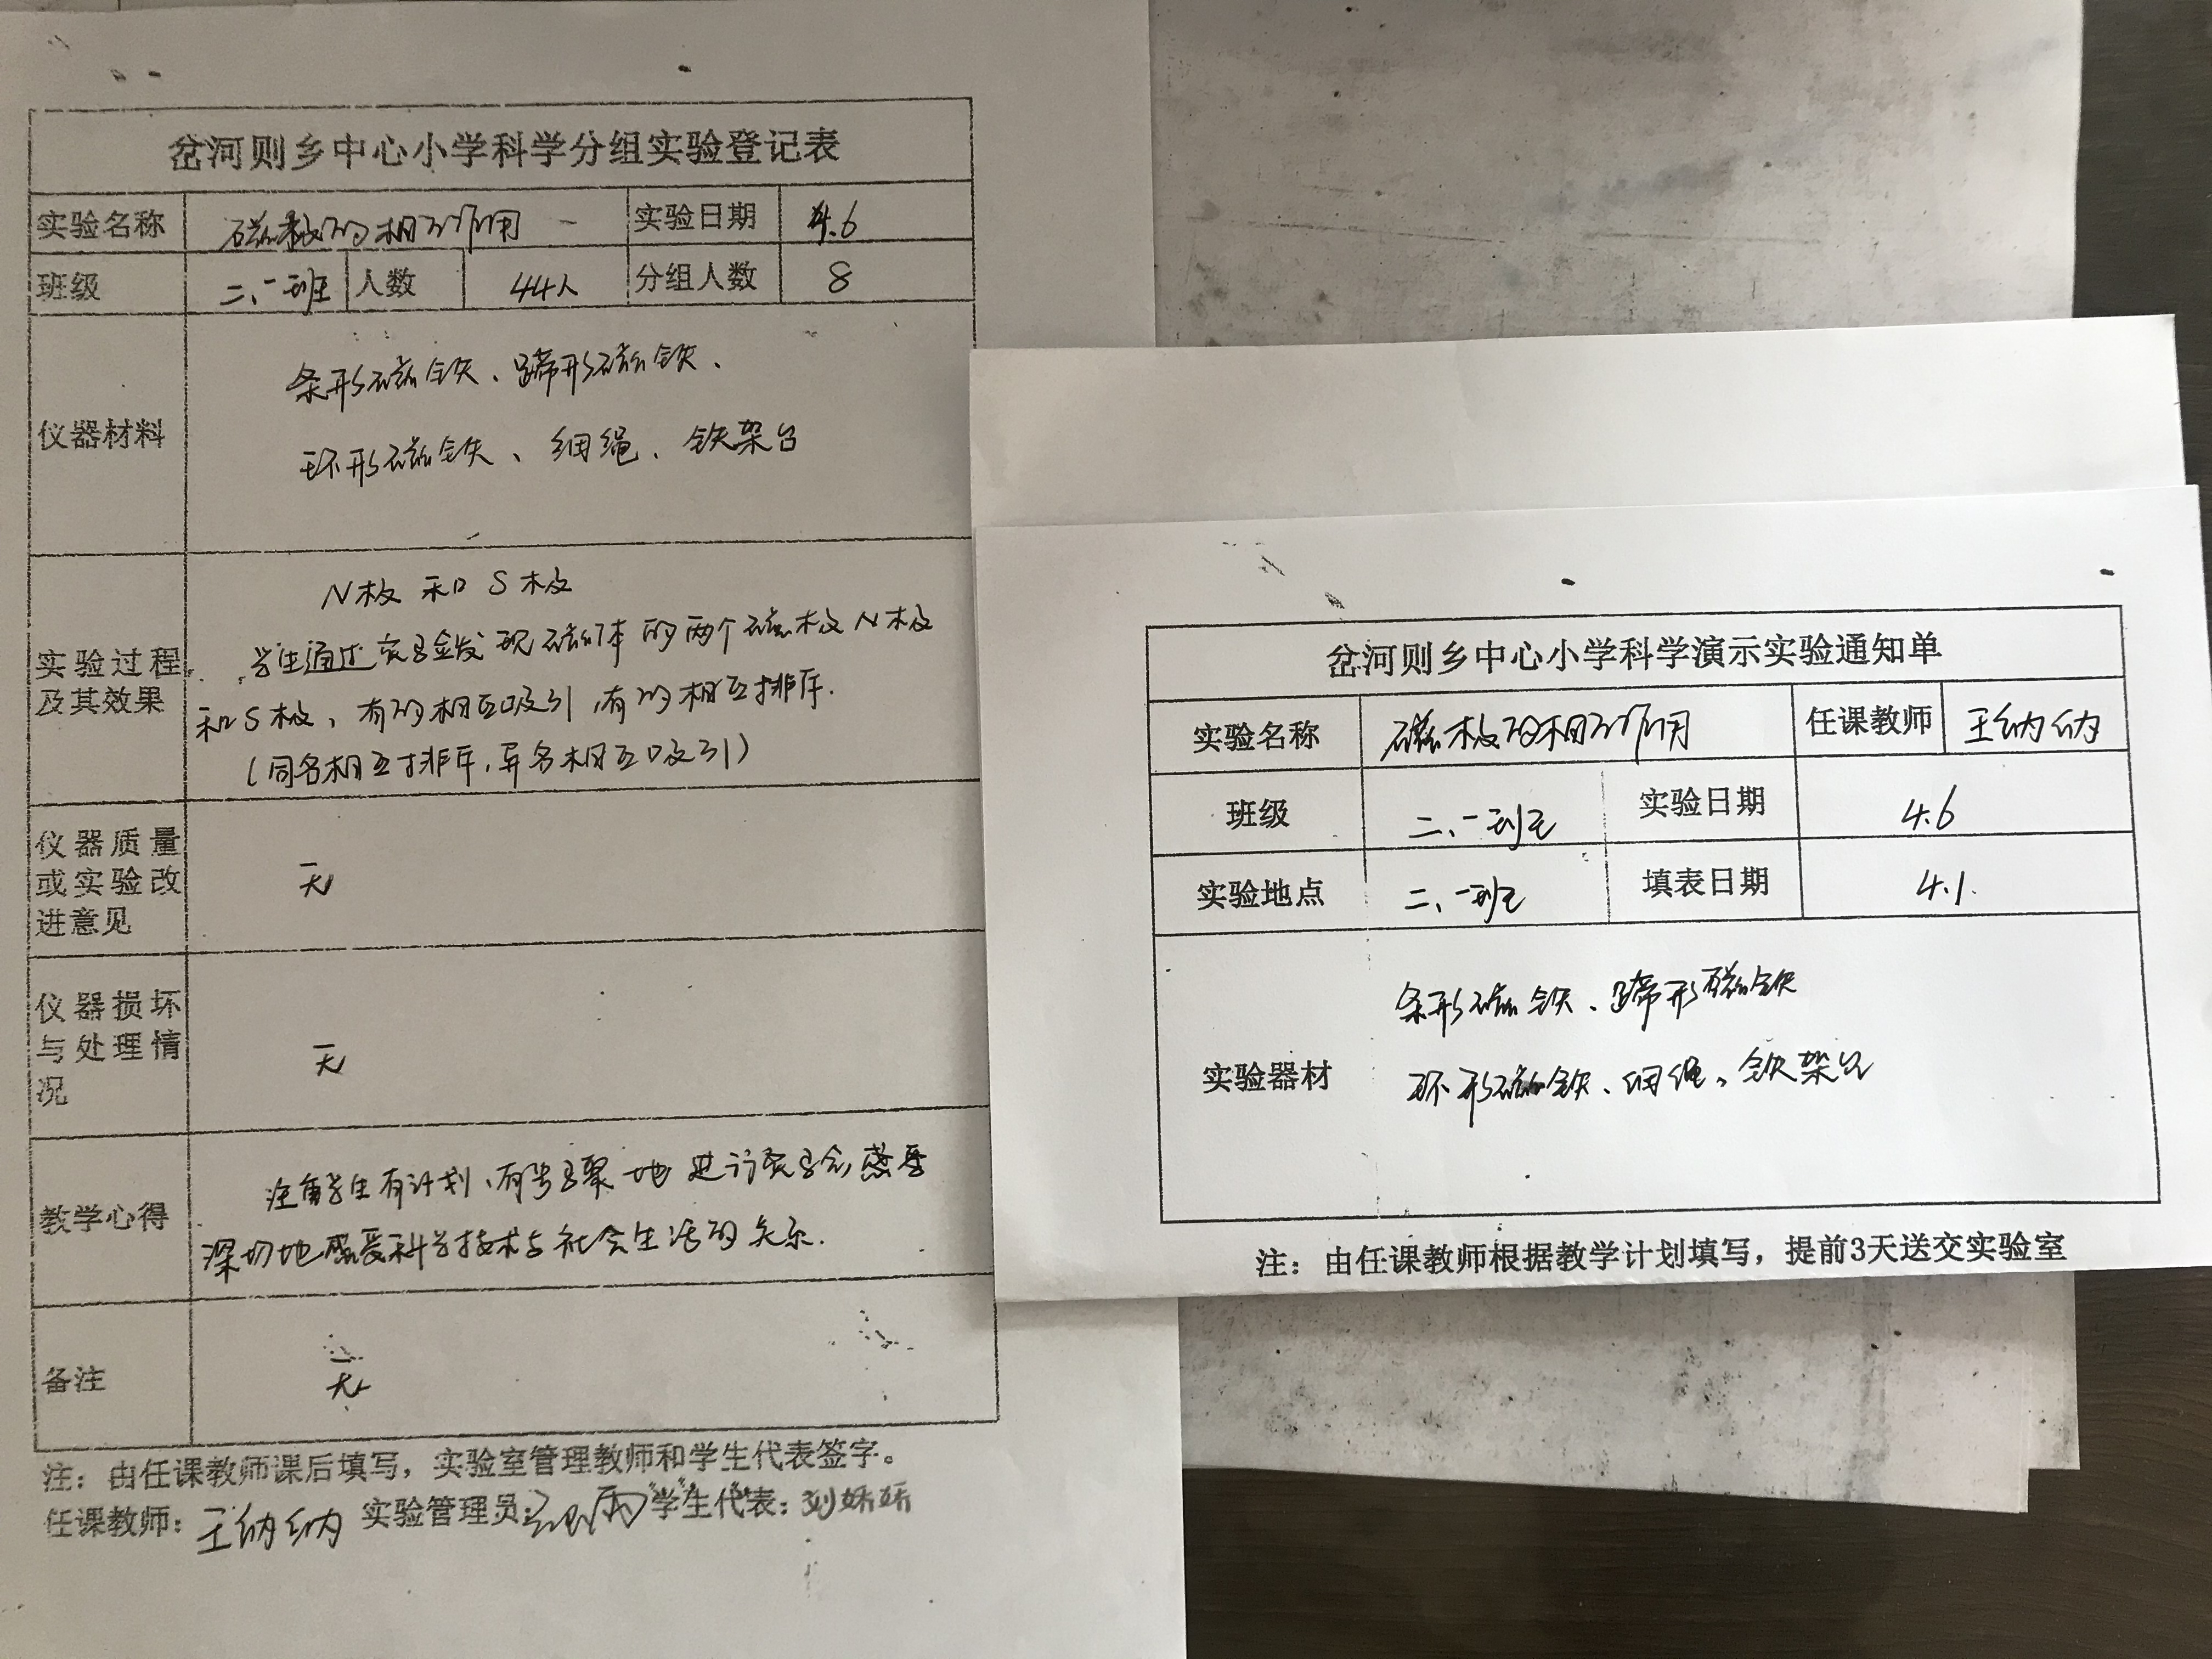 岔河则乡中心小学科学分组实验登记表
实验名称 磁极的相互作用 实验日期 4.6
班级 二、一班 人数 44人 分组人数 8
仪器材料
条形磁铁、蹄形磁铁、
环形磁铁、细绳、铁架台
实验过程
及其效果
N极 和 S极
学生通过实验发现磁体的两个磁极N极
和S极，有的相互吸引，有的相互排斥.
(同名相互排斥,异名相互吸引)
仪器质量
或实验改
进意见
无
仪器损坏
与处理情
况
无
教学心得
学生有计划、有步骤地进行实验,
深切地感受科学技术与社会生活的关系.
备注
无
注：由任课教师课后填写，实验室管理教师和学生代表签字。
任课教师：王纳纳 实验管理员： 学生代表：刘娇娇
岔河则乡中心小学科学演示实验通知单
实验名称 磁极的相互作用 任课教师 王纳纳
班级 二、一班 实验日期 4.6
实验地点 二、一班 填表日期 4.1.
实验器材
条形磁铁、蹄形磁铁
环形磁铁、细绳、铁架台
注：由任课教师根据教学计划填写，提前3天送交实验室